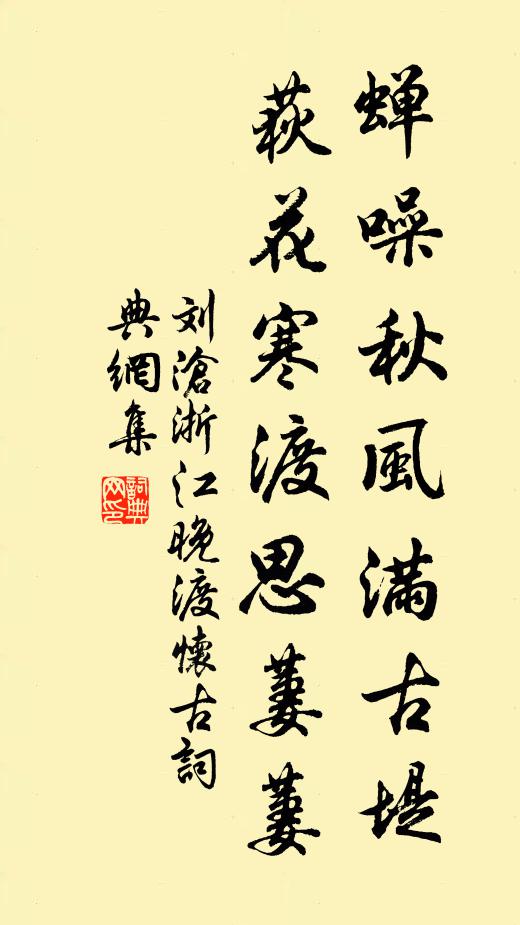 蝉噪秋風满古堤
荻花寒渡思萋萋
刘滄浙江晚渡懷古詞
典網集
詞典网印